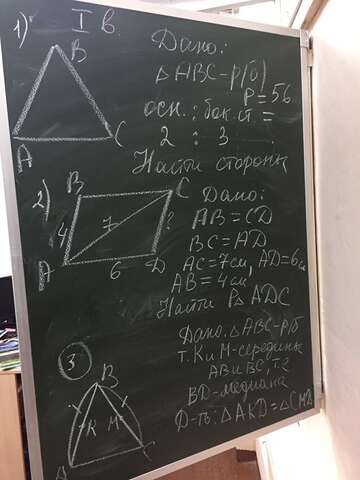 I в.
1)
B
A
C
Дано:
△ABC-р/б)
P=56
осн.: бок.ст. =
2 : 3
Найти стороны
2)
B
C
7
?
4
A
6
D
Дано:
AB=CD
BC=AD
AC=7см, AD=6см
AB=4см
Найти P△ADC
3
B
K
M
A
C
Дано. △ABC-р/б
т. K и M-середины
AB и BC, т.е
BD-медиана
Д-ть: △AKD=△CMD